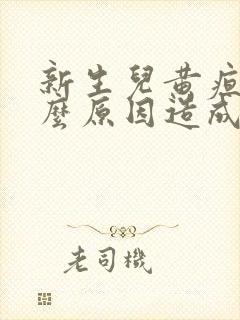 新生兒黃疸
麼原因造成
老司機